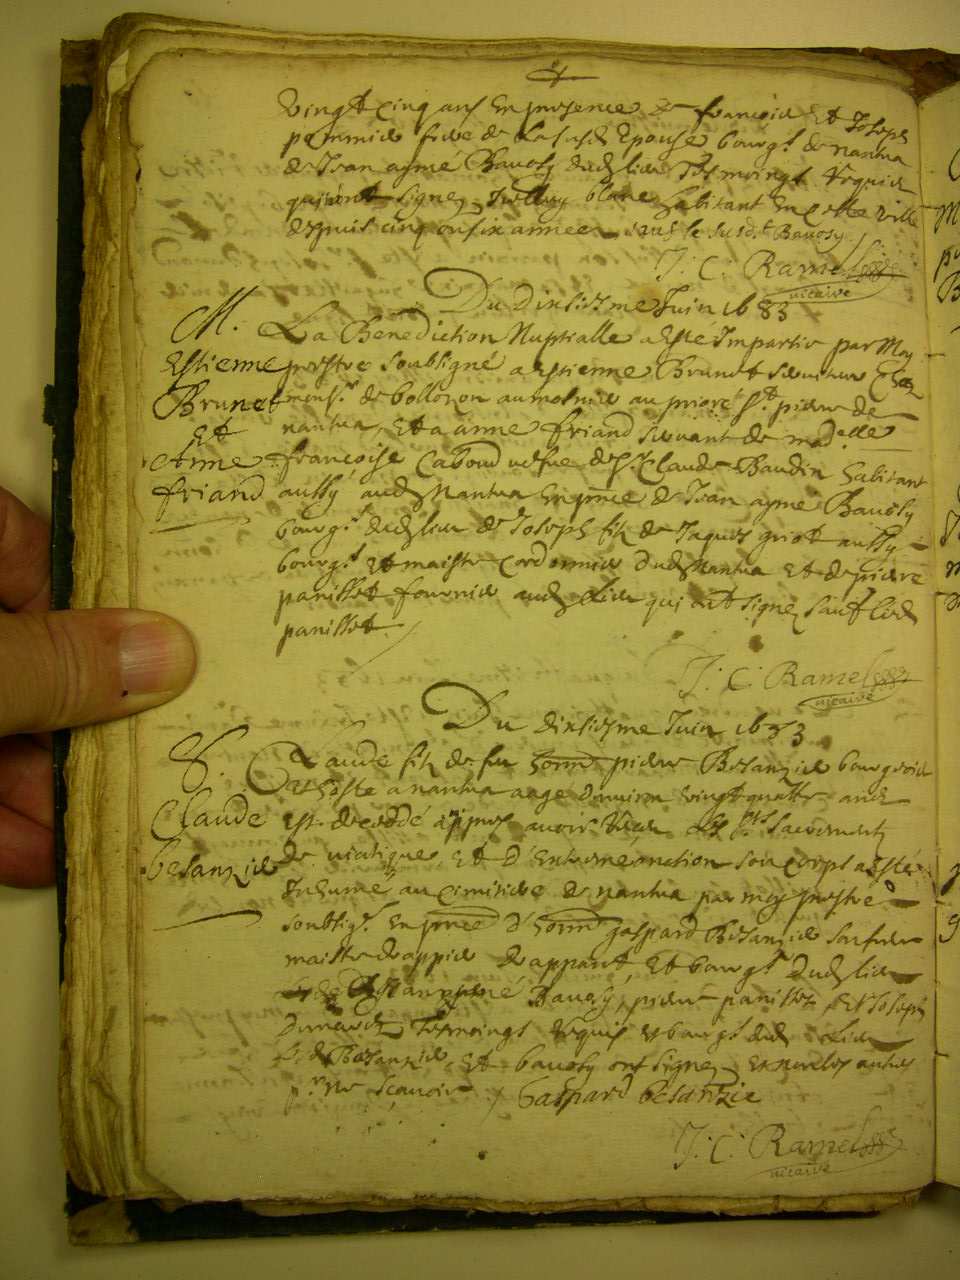 vingt cinq ans en presence de francois et Joseph
pommier frere de la susd. Epouse bourg.s de nantua
de Jean aymé Bavosy dud. lieu Tesmoings requis
qui ont signez, blanc habitant en cette ville
depuis cinq ou six années, sauf le susd.t Bavosy.
J. C. Ramel
vicaire
Du dixiesme Juin 1683
M.
Estienne
Brunet
Et
Anne
friand
La Benediction Nuptialle a Esté Impartie par Moy
prestre soubsigné a estienne Brunet serviteur chez
mons.r de bollozon aumosnier au prioré S.t pierre de
nantua, Et a anne friand servant de mad.elle
françoise Caboud vefve de S.r Claude Baudin habitant
aussy aud. Nantua En pnce de Jean aymé Bavosy
bourg.s dud. lieu de Joseph filz de Jaques griot aussy
bourg.s Et maistre Cordonnier dud. Nantua Et de pierre
panisset fournier aud. lieu qui ont signez sauf led.
panisset.
J. C. Ramel
vicaire
Du dixiesme Juin 1683
S.
Claude
besanzie
Claude filz de feu honn. pierre Besanzie bourgeois
Et hoste a nantua aage denviron vingt quattre ans
Est decedé apres avoir receu les Sts Sacrements
de viatique, Et d'Extreme onction son corps a Esté
Inhumé au cimitiere de nantua par moy prestre
soubsig.é En pnce d'honn. gaspard Besanzie son frere
maistre drappier drappant Et bourg.s dud. lieu
de Jean aymé Bavosy, pierre panisset, Et Joseph
Tesmoings requis Et bourg.s dud. lieu
Led. Besanzie Et bavosy ont signez, Et non les autres
p.r ne scavoir / Gaspard besanzie
J. C. Ramel
vicaire